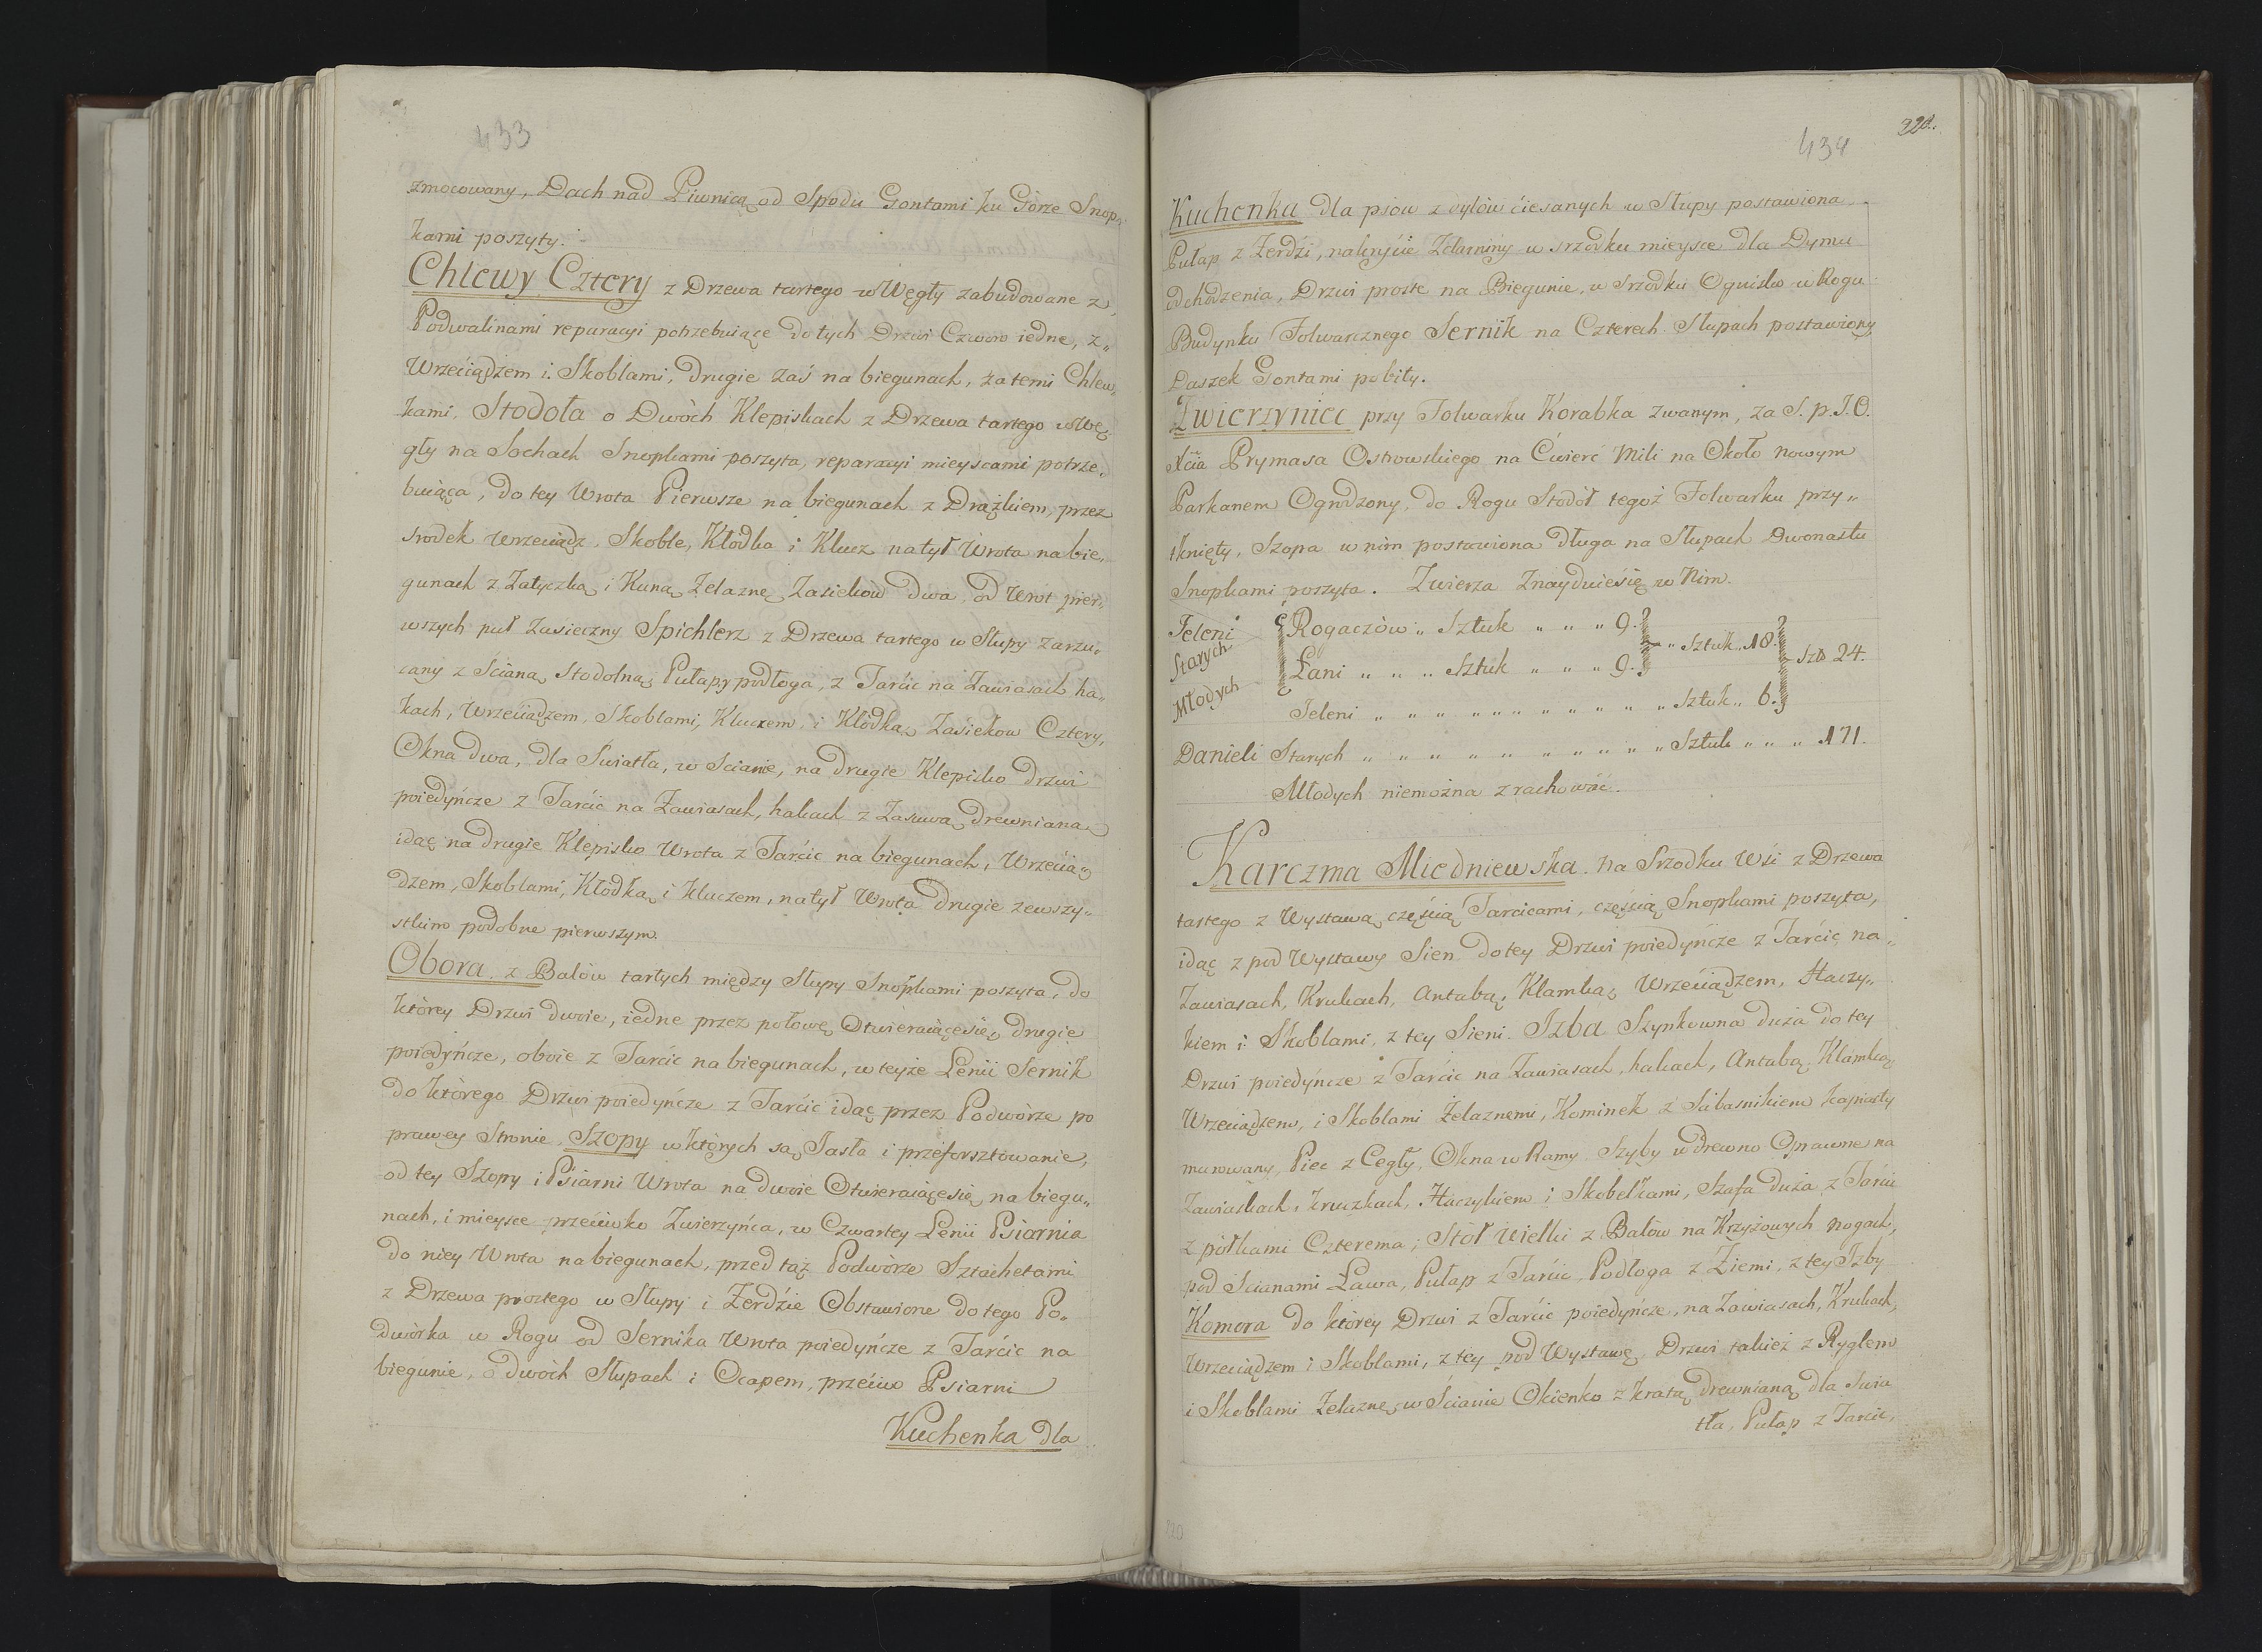 433
zmocowany, Dach nad Piwnicą od Spodu Gontami ku Górze Snop„
kami poszyty.
Chlewy Cztery z Drzewa tartego w Węgły zabudowane z„
Podwalinami reparacyi potrzebuiące do tych Drzwi Czworo iedne, z„
Wrzeciądzem i Skoblami, drugie zaś na biegunach, za temi Chlew„
kami. Stodoła o Dwóch Klepiskach z Drzewa tartego w Wę„
gły na Sochach Snopkami poszyta, reparacyi mieyscami potrze„
buiąca, do tey Wrota Pierwsze na biegunach z Drążkiem, przez
srodek wrzeciądz, Skoble, Kłódka i Klucz na tył Wrota na bie„
gunach z Zatyczką i Kuną Zelazne Zasieków dwa od Wrot pier„
wszych puł Zasieczny Spichlerz z Drzewa tartego w Słupy zarzu„
cany z Ścianą Stodolną, Pułap y podłoga, z Tarcic na Zawiasach ha„
kach, Wrzeciądzem, Skoblami, Kluczem, i Kłódką, Zasiekow Cztery,
Okna dwa, dla Swiatła, w Scianie, na drugie Klepisko drzwi
poiedyńcze z Tarcic na Zawiasach, hakach z Zasuwą drewnianą
idąc na drugie Klepisko Wrota z Tarcic na biegunach, Wrzecią„
dzem, Skoblami, Kłódką i kluczem, na tył Wrota drugie zewszy„
stkim podobne pierwszym.
Obora z Balów tartych między Słupy Snopkami poszyta, do
którey Drzwi dwoie, iedne przez połowę Otwieraiącesię, drugie
poiedyńcze, oboie z Tarcic na biegunach, w teyże Lenii Sernik
do którego Drzwi poiedyńcze z Tarcic idąc przez Podwórze po
prawey Stronie. Szopy w których są Jasła i przeforsztowanie,
od tey Szopy i Psiarni Wrota na dwoie Otwieraiącesię, na biegu„
nach, i mieysce przeciwko Zwierzyńca, w Czwartey Lenii Psiarnia
do niey Wrota na biegunach, przed tąż Podwórze Sztachetami
z Drzewa prostego w Słupy i Zerdzie Obstawione do tego Po„
dwórka w Rogu od Sernika Wrota poiedyńcze z Tarcic na
biegunie, o dwóch Słupach i Ocapem, przeciw Psiarni
Kuchenka dla
434
Kuchenka dla psow z dylów ciesanych w Słupy postawiona
Pułap z Zerdzi, w srzodku mieysce dla Dymu
odchodzenia, Drzwi proste na Biegunie, w Srzodku Ognisko w Rogu
Budynku Folwarcznego Sernik na Czterech Słupach postawiony,
Daszek Gontami pobity.
Zwierzyniec przy Folwarku Korabka zwanym, za S. p. J. O.
Xcia Prymasa Ostrowskiego na Ćwierć Mili na Około nowym
Parkanem Ogrodzony, do Rogu Stodół tegoż Folwarku przy„
tknięty, Szopa w nim postawiona długa na Słupach Dwonastu
Snopkami poszyta. Zwierza Znayduiesię w Nim.
Jeleni Starych Rogaczów „ Sztuk „ „ „ 9.
Łani „ „ „ Sztuk „ „ „ 9. „ Sztuk „ 18.
Młodych Jeleni „ „ „ „ „ „ „ „ „ „ „ Sztuk „ 6. Szt. 24.
Danieli Starych „ „ „ „ „ „ „ „ „ „ „ Sztuk „ „ „ 171.
Młodych niemożna zrachować.
Karczma Miedniewska. Na Srzodku Wśi z Drzewa
tartego z Wystawą częścią Tarcicami, częścią Snopkami poszyta,
idąc z pod Wystawy Sien do tey Drzwi poiedyńcze z Tarcic na„
Zawiasach, Krukach, Antabą, Klamką, Wrzeciądzem, Haczy„
kiem i Skoblami, z tey Sieni. Izba Szynkowna duża do tey
Drzwi poiedyńcze z Tarcic na Zawiasach, hakach, Antabą, Klamką
Wrzeciądzem, i Skoblami Zelaznemi, Kominek z Sabasnikiem kapiasty
murowany, Piec z Cegły, Okna w Ramy Szyby w drewno Oprawne na
Zawiaskach, kruczkach, Haczykiem i Skobelkami, Szafa duża z Tarcic
z półkami Czterema; Stół Wielki z Balów na Krzyżowych nogach,
pod Scianami Ława, Pułap z Tarcic, Podłoga z Ziemi, z tey Izby
Komora do którey Drzwi z Tarcic poiedyńcze, na Zawiasach, Krukach,
Wrzeciądzem i Skoblami, z tey pod Wystawę Drzwi takież z Ryglem
i Skoblami Zelazne, w Ścianie Okienko z kratą drewnianą dla swia
tła, Pułap z Tarcic,